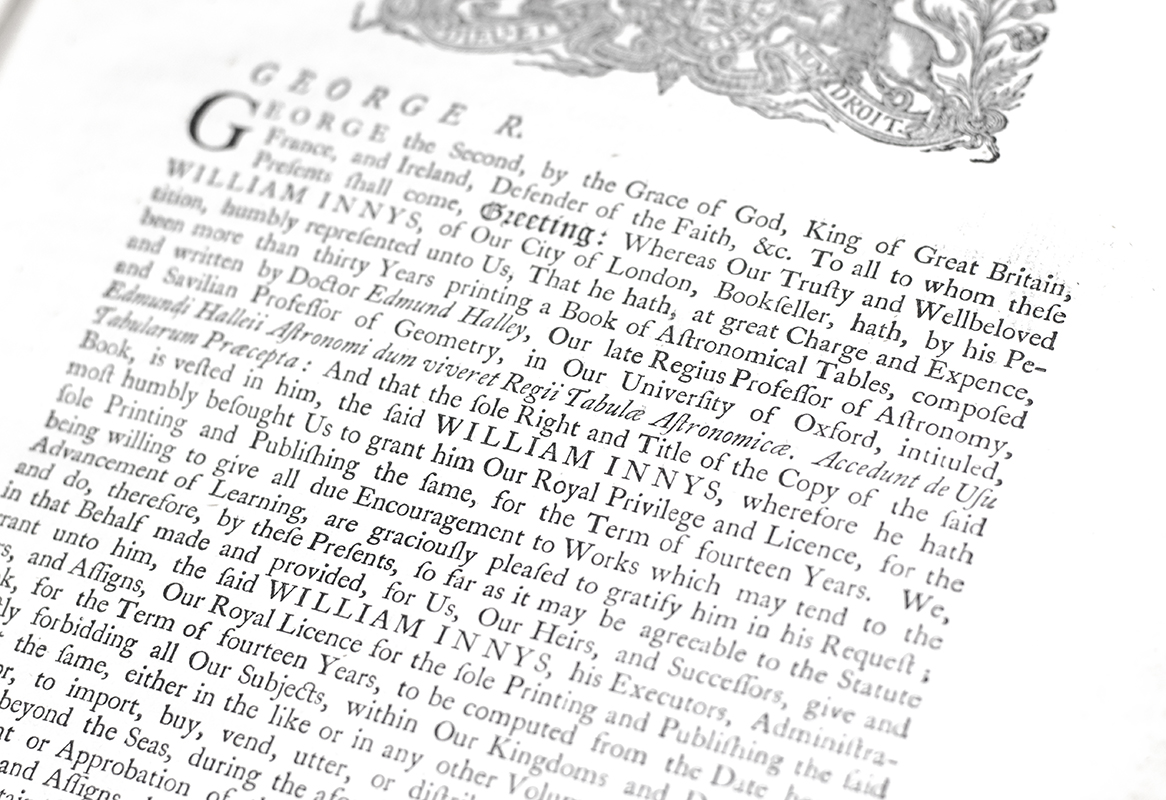 DROIT
GEORGE R.
GEORGE the Second, by the Grace of God, King of Great Britain,
France, and Ireland, Defender of the Faith, &c. To all to whom theſe
Preſents ſhall come, Greeting: Whereas Our Truſty and Wellbeloved
WILLIAM INNYS, of Our City of London, Bookſeller, hath, by his Pe-
tition, humbly repreſented unto Us, That he hath, at great Charge and Expence,
been more than thirty Years printing a Book of Aſtronomical Tables, compoſed
and written by Doctor Edmund Halley, Our late Regius Profeſſor of Aſtronomy,
and Savilian Profeſſor of Geometry, in Our Univerſity of Oxford, intituled,
Edmundi Halleii Aſtronomi dum viveret Regii Tabulæ Aſtronomicæ. Accedunt de Uſu
Tabularum Præcepta: And that the ſole Right and Title of the Copy of the ſaid
Book, is veſted in him, the ſaid WILLIAM INNYS, wherefore he hath
moſt humbly beſought Us to grant him Our Royal Privilege and Licence, for the
ſole Printing and Publiſhing the ſame, for the Term of fourteen Years. We,
being willing to give all due Encouragement to Works which may tend to the
Advancement of Learning, are graciouſly pleaſed to gratify him in his Requeſt;
and do, therefore, by theſe Preſents, ſo far as it may be agreeable to the Statute
in that Behalf made and provided, for Us, Our Heirs, and Succeſſors, give and
unto him, the ſaid WILLIAM INNYS, his Executors, Adminiſtra-
and Aſſigns, Our Royal Licence for the ſole Printing and Publiſhing the ſaid
for the Term of fourteen Years, to be computed from the Date
forbidding all Our Subjects, within Our Kingdoms and
the ſame, either in the like or in any other
to import, buy, vend, utter, or
beyond the Seas, during the
or Approbation of
and Aſſigns